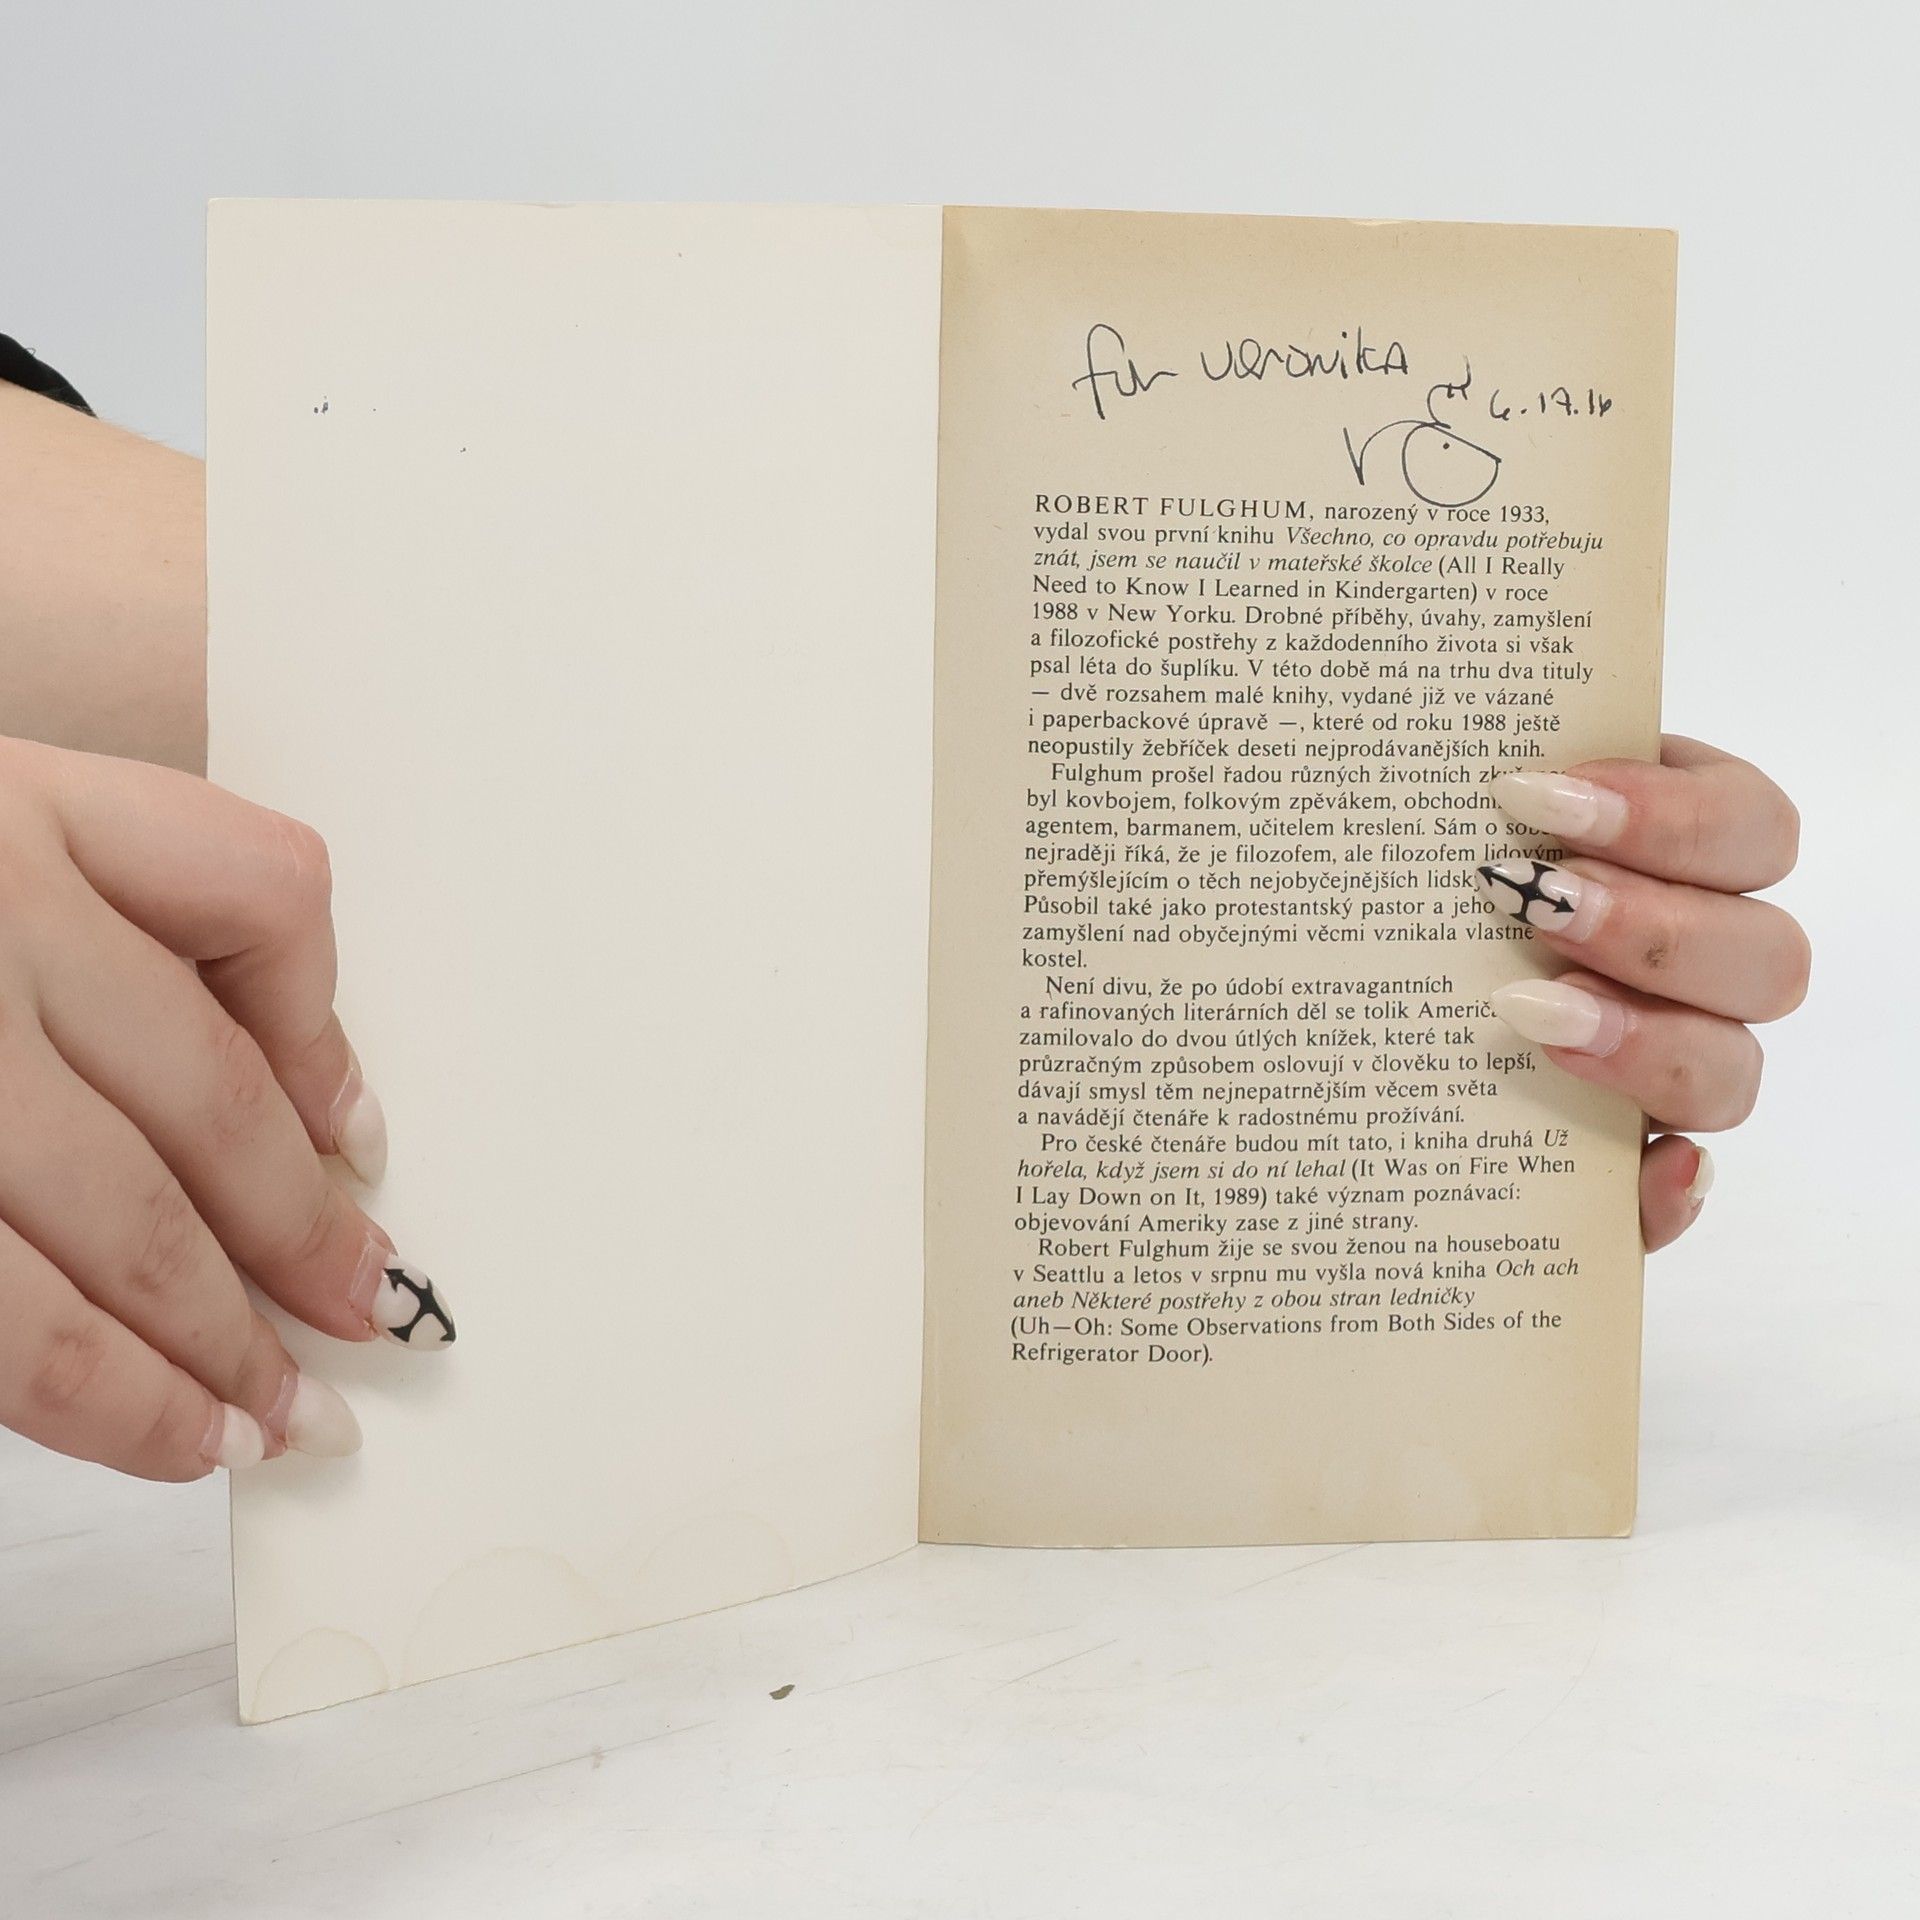 for veronika
6.17.16
ROBERT FULGHUM, narozený v roce 1933,
vydal svou první knihu Všechno, co opravdu potřebuju
znát, jsem se naučil v mateřské školce (All I Really
Need to Know I Learned in Kindergarten) v roce
1988 v New Yorku. Drobné příběhy, úvahy, zamyšlení
a filozofické postřehy z každodenního života si však
psal léta do šuplíku. V této době má na trhu dva tituly
— dvě rozsahem malé knihy, vydané již ve vázané
i paperbackové úpravě —, které od roku 1988 ještě
neopustily žebříček deseti nejprodávanějších knih.
Fulghum prošel řadou různých životních
byl kovbojem, folkovým zpěvákem,
agentem, barmanem, učitelem kreslení. Sám o
nejraději říká, že je filozofem, ale filozofem lidovým
přemýšlejícím o těch nejobyčejnějších
Působil také jako protestantský pastor a jeho
zamyšlení nad obyčejnými věcmi vznikala vlastně
kostel.
Není divu, že po údobí extravagantních
a rafinovaných literárních děl se tolik
zamilovalo do dvou útlých knížek, které tak
průzračným způsobem oslovují v člověku to lepší,
dávají smysl těm nejnepatrnějším věcem světa
a navádějí čtenáře k radostnému prožívání.
Pro české čtenáře budou mít tato, i kniha druhá Už
hořela, když jsem si do ní lehal (It Was on Fire When
I Lay Down on It, 1989) také význam poznávací:
objevování Ameriky zase z jiné strany.
Robert Fulghum žije se svou ženou na houseboatu
v Seattlu a letos v srpnu mu vyšla nová kniha Och ach
aneb Některé postřehy z obou stran ledničky
(Uh—Oh: Some Observations from Both Sides of the
Refrigerator Door).